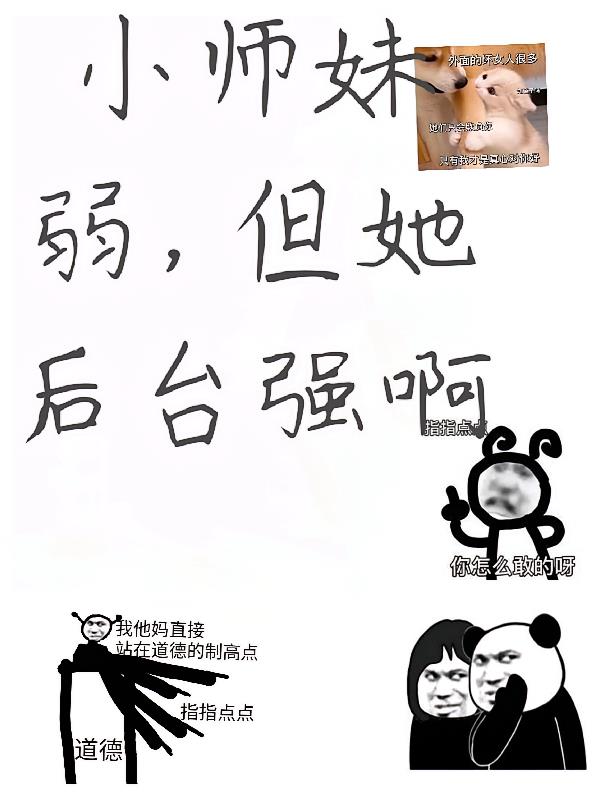 小师妹
弱，但她
后台强啊
外面的坏女人很多
她们只会骗你
只有我才是真心对你好
指指点点
你怎么敢的呀
我他妈直接
站在道德的制高点
指指点点
道德